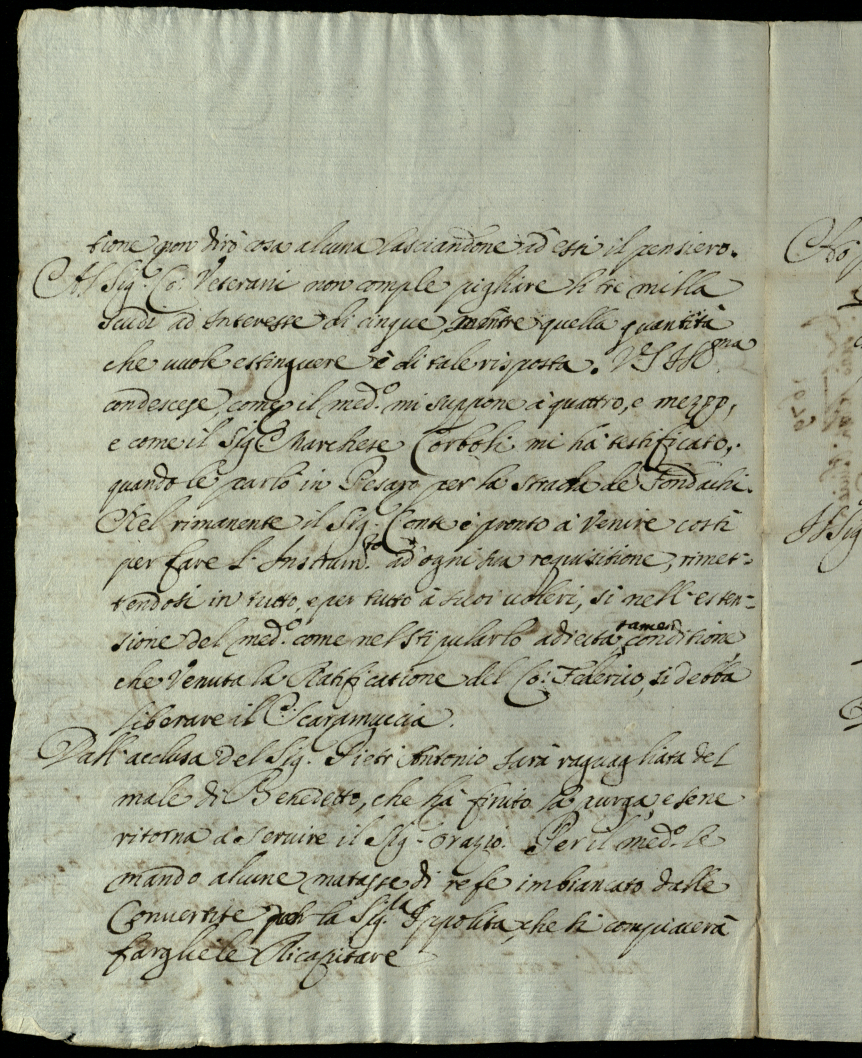 tione non dirò cosa alcuna lasciandone ad essi il pensiero.
Al Sig.r Co: Veterani non comple pigliare li tre milla
scudi ad Interesse di cinque, mentre quella quantità
che vuole estinguere è di tale risposta. V S Ill.ma
condescese, come il med.o mi suppone à quattro, e mezzo,
e come il Sig.r Marchese Corboli mi hà testificato,
quando le parlò in Pesaro per la strada de Fondachi.
Nel rimanente il Sig.r Conte è pronto à Venire costì
per fare l'Instrum.to ad ogni sua requisitione, rimet=
tendosi in tutto, e per tutto à suoi voleri, sì nell'esten=
sione del med.o come nel stipularlo adiecta tamen conditione
che Venuta la Ratificatione del Co: Federico, si debba
liberare il C. Scaramuccia.
Dall'acclusa del Sig.r Pietr'Antonio sarà raguagliata del
male di Benedetto, che hà finito la purga, e se ne
ritorna à servire il Sig.r Orazio. Per il med.o le
mando alcune matasse di refe imbiancato dalle
Convertite per la Sig.ra Ippolita, che si compiacerà
fargliele Ricapitare
Il Sig